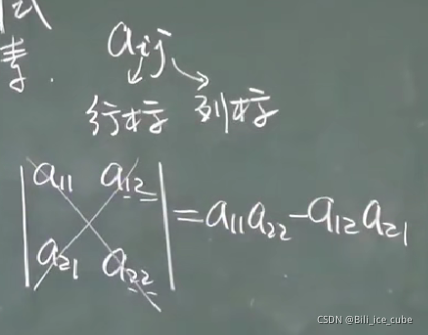 式
素.
aij
行标 列标
|a11 a12|
|a21 a22| =a11a22-a12a21
CSDN @Bili_ice_cube